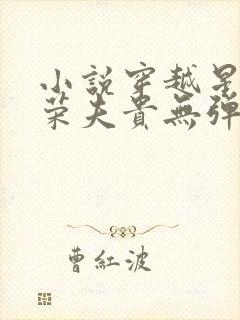 小説穿越星
荣夫貴無弾
曹紅波